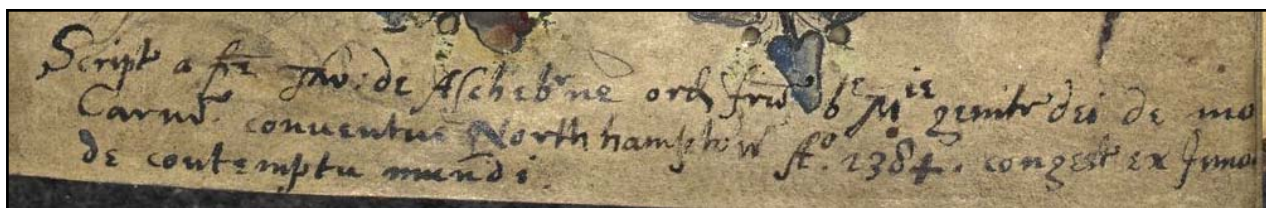 Script a frē Tho: de Aschebʳne ord frū bᵉ Mⁱᵉ genitr dei de mo
Carm̃. conventus Northhampton Aᵒ. 1384. congest ex Inno
de contemptu mundi